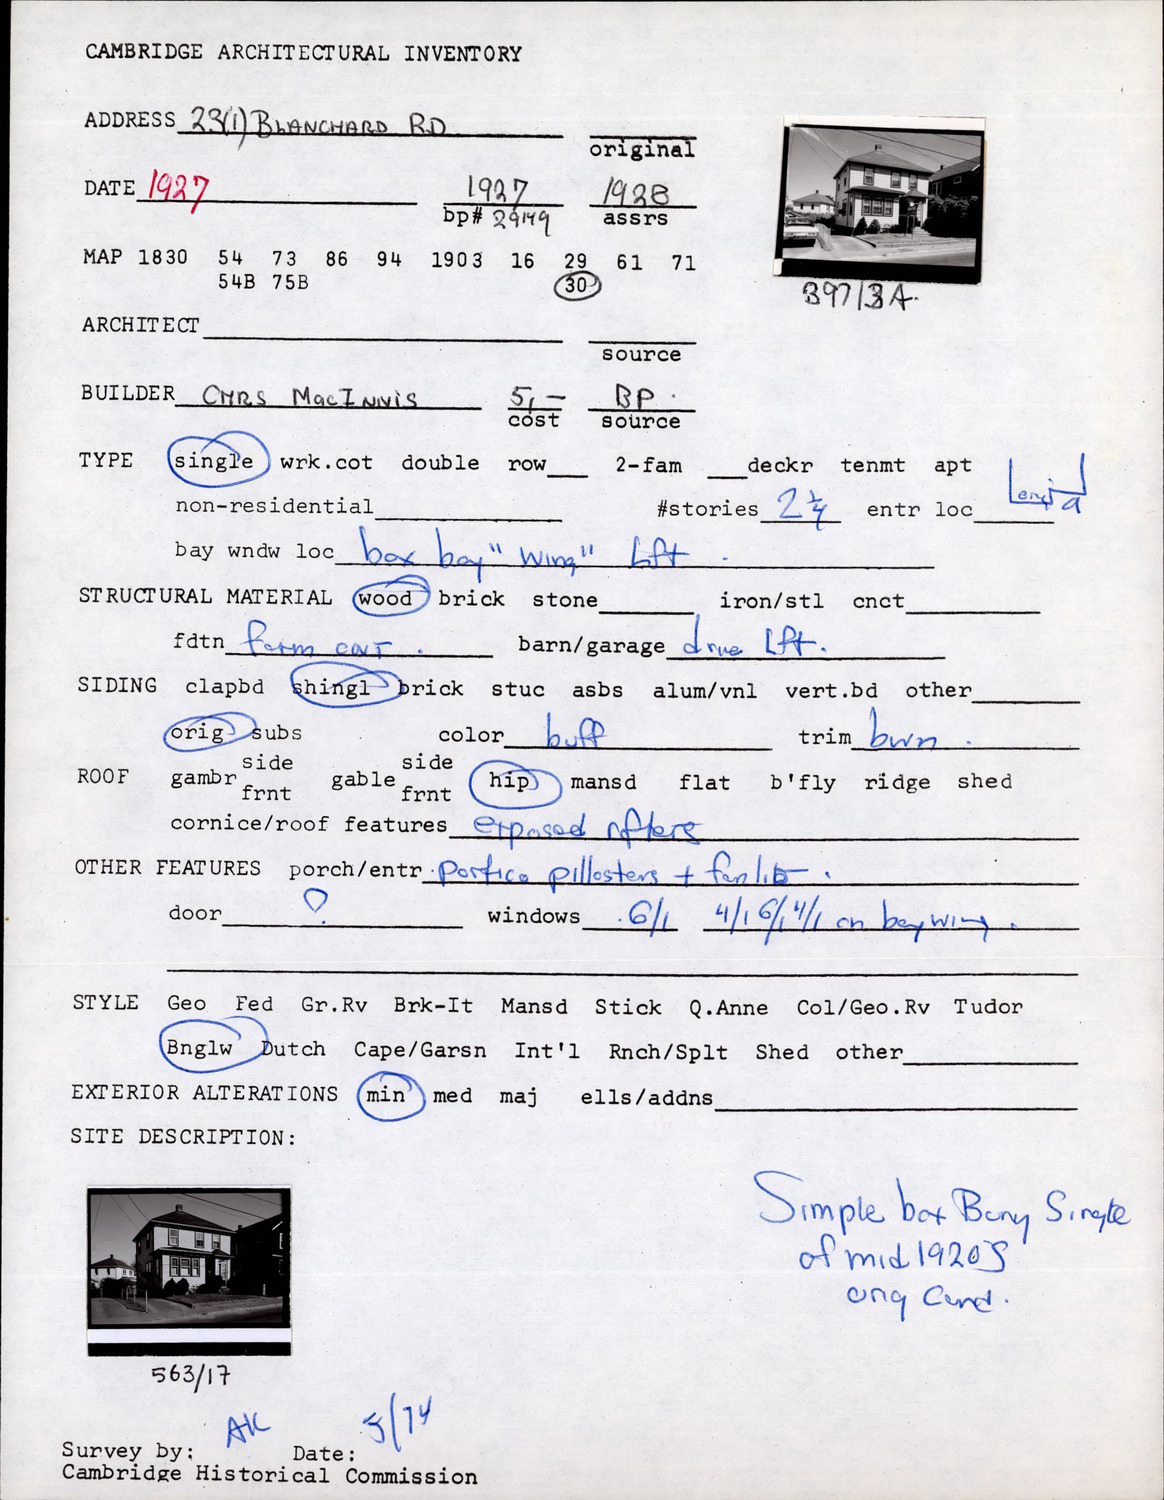 CAMBRIDGE ARCHITECTURAL INVENTORY
ADDRESS 23(1) BLANCHARD RD
original
DATE 1927 1927 1928
bp# 29149 assrs
MAP 1830 54 73 86 94 1903 16 29 61 71
54B 75B 30
397/3A.
ARCHITECT
source
BUILDER CHRS MacINNIS 5,— BP.
cost source
TYPE single wrk.cot double row 2-fam deckr tenmt apt
non-residential #stories 2¼ entr loc
bay wndw loc box bay "wing" Lft
STRUCTURAL MATERIAL wood brick stone iron/stl cnct
fdtn barn/garage drive Lft.
SIDING clapbd shingl brick stuc asbs alum/vnl vert.bd other
orig subs color buff trim bwn.
ROOF gambr side frnt gable side frnt hip mansd flat b'fly ridge shed
cornice/roof features exposed rfters
OTHER FEATURES porch/entr portico pillasters + fanlit.
door ? windows 6/1 4/1 6/1 4/1 on bay wing.
STYLE Geo Fed Gr.Rv Brk-It Mansd Stick Q.Anne Col/Geo.Rv Tudor
Bnglw Dutch Cape/Garsn Int'l Rnch/Splt Shed other
EXTERIOR ALTERATIONS min med maj ells/addns
SITE DESCRIPTION:
Simple box Single
of mid 1920s
563/17
Survey by: AK Date: 5/74
Cambridge Historical Commission